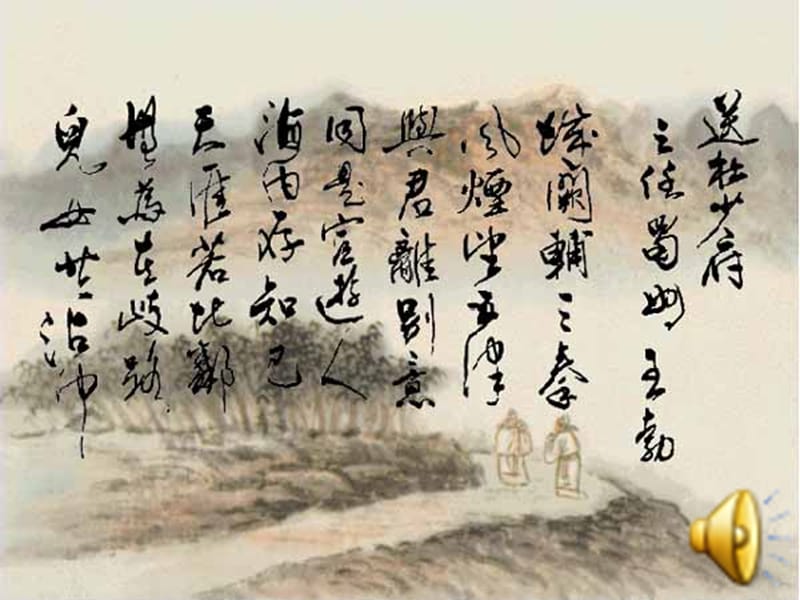 送杜少府
之任蜀州 王勃
城闕輔三秦
風煙望五津
與君離別意
同是宦遊人
海內存知己
天涯若比鄰
無為在歧路
兒女共沾巾